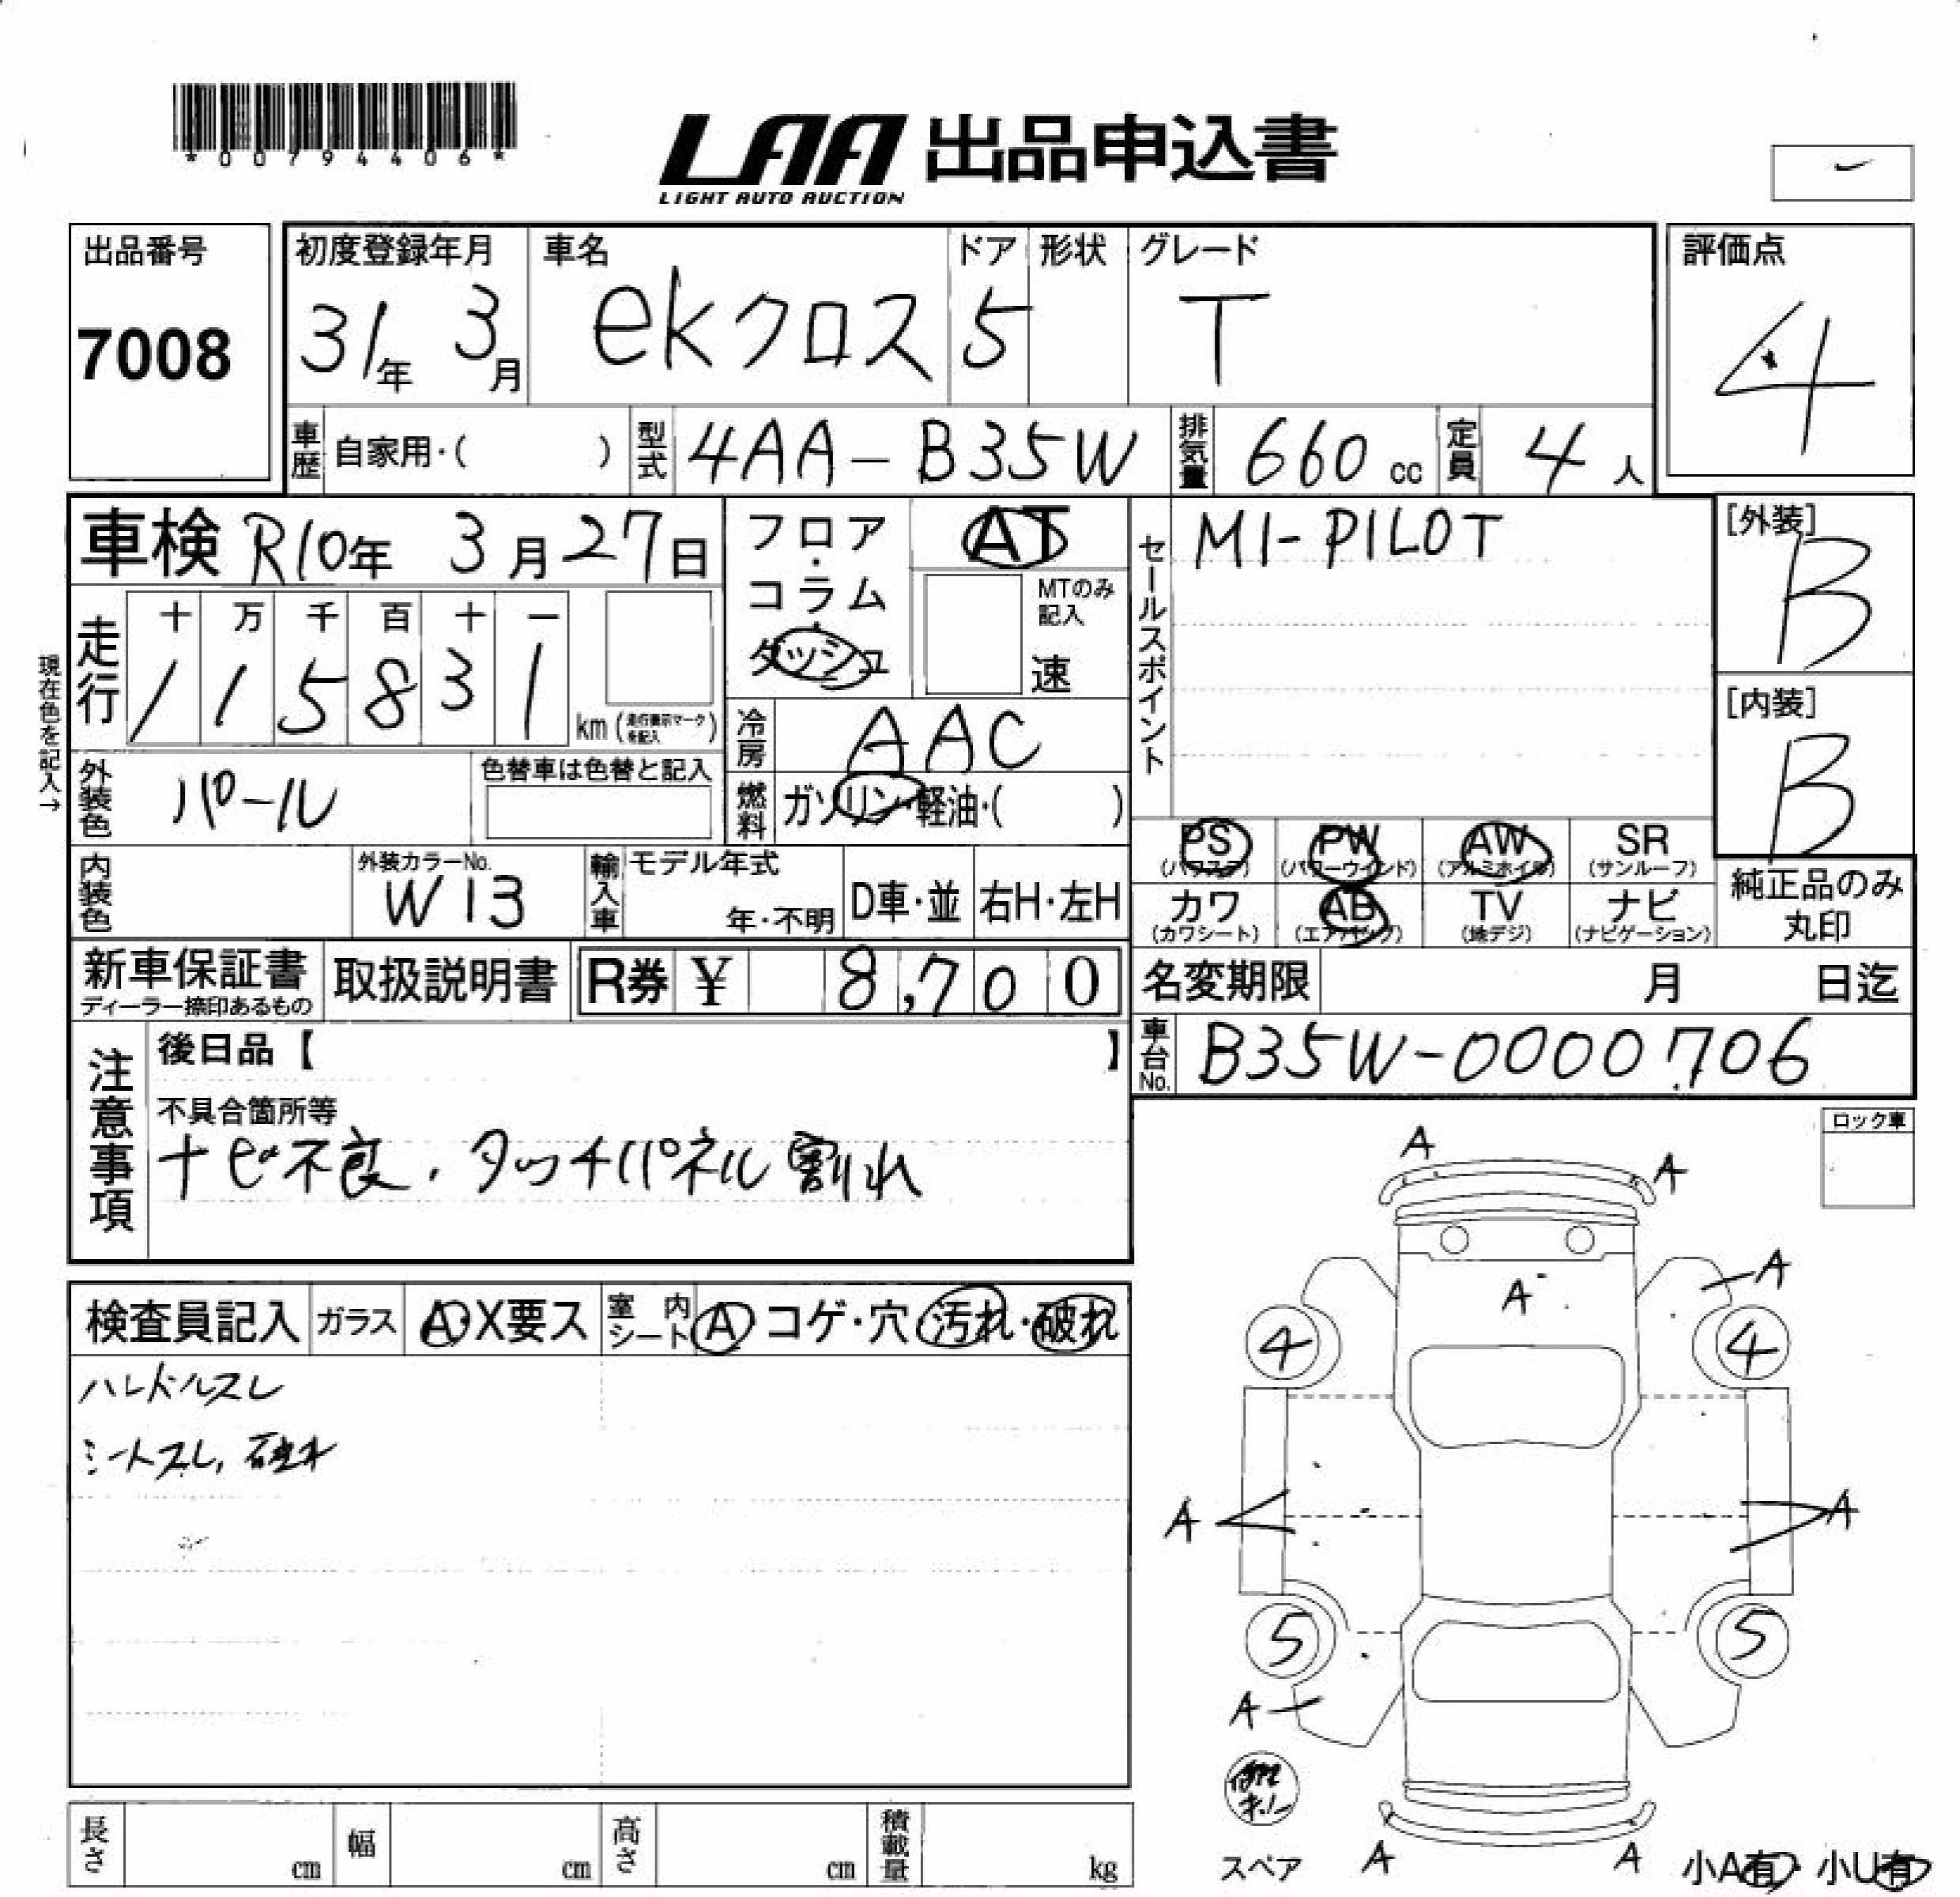 *00794406*
LAA 出品申込書
LIGHT AUTO AUCTION
出品番号
7008
初度登録年月
31年 3月
車名
ekクロス
ドア
5
形状
グレード
T
評価点
4
車歴 自家用・( )
型式 4AA-B35W
排気量 660 cc
定員 4 人
車検 R10年 3月27日
フロア・コラム・ダッシュ
AT
MTのみ記入
速
セールスポイント
MI-PILOT
[外装]
B
[内装]
B
現在色を記入→
走行
十 万 千 百 十 一
1 1 5 8 3 1 km (走行表示マークを記入)
冷房 AAC
燃料 ガソリン・軽油・( )
外装色 パール
色替車は色替と記入
内装色
外装カラーNo.
W13
輸入車
モデル年式
年・不明
D車・並
右H・左H
PS (パワステ)
PW (パワーウインド)
AW (アルミホイル)
SR (サンルーフ)
カワ (カワシート)
AB (エアバック)
TV (地デジ)
ナビ (ナビゲーション)
純正品のみ丸印
新車保証書
ディーラー捺印あるもの
取扱説明書
R券 ¥ 8,700
名変期限 月 日迄
車台No. B35W-0000706
注意事項
後日品【 】
不具合箇所等
ナビ不良.タッチパネル割れ
ロック車
検査員記入
ガラス A・X要ス
室内シート A コゲ・穴・汚れ・破れ
ハンドルスレ
シートスレ, 破れ
A
A
A
A
4
4
A
A
5
5
A
スペア
A
A
小A有・小U有
長さ cm
幅 cm
高さ cm
積載量 kg